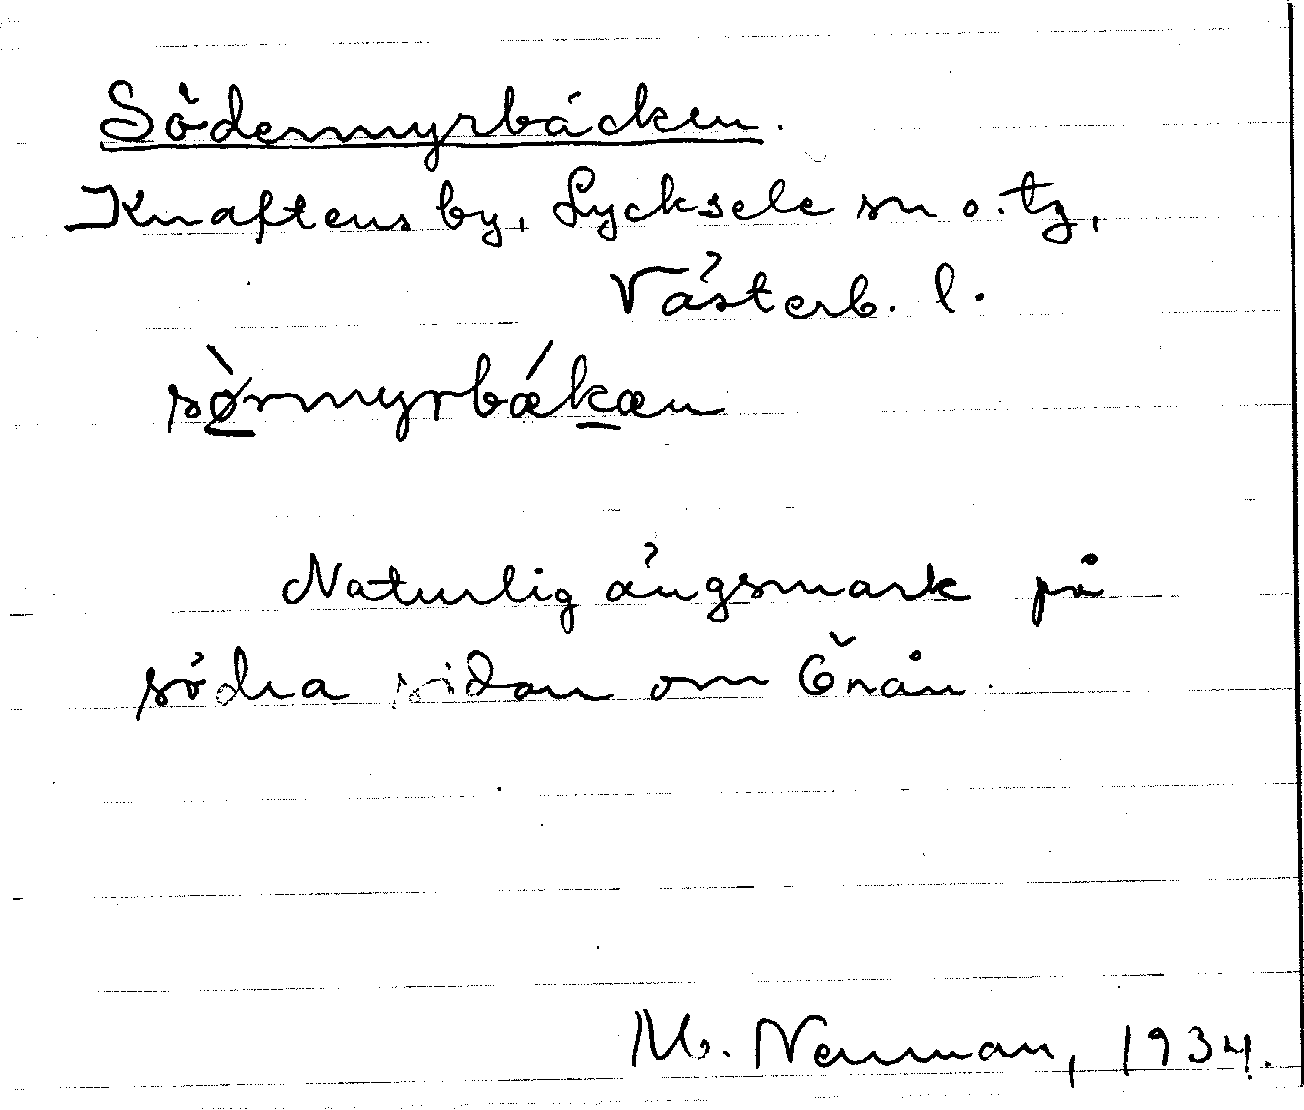 Södermyrbäcken.
Knaftens by, Lycksele sn o. tg,
Västerb. l.
sø̀rmyrbǽkæn
Naturlig ängsmark på
södra sidan om Örån.
M. Neuman, 1934.